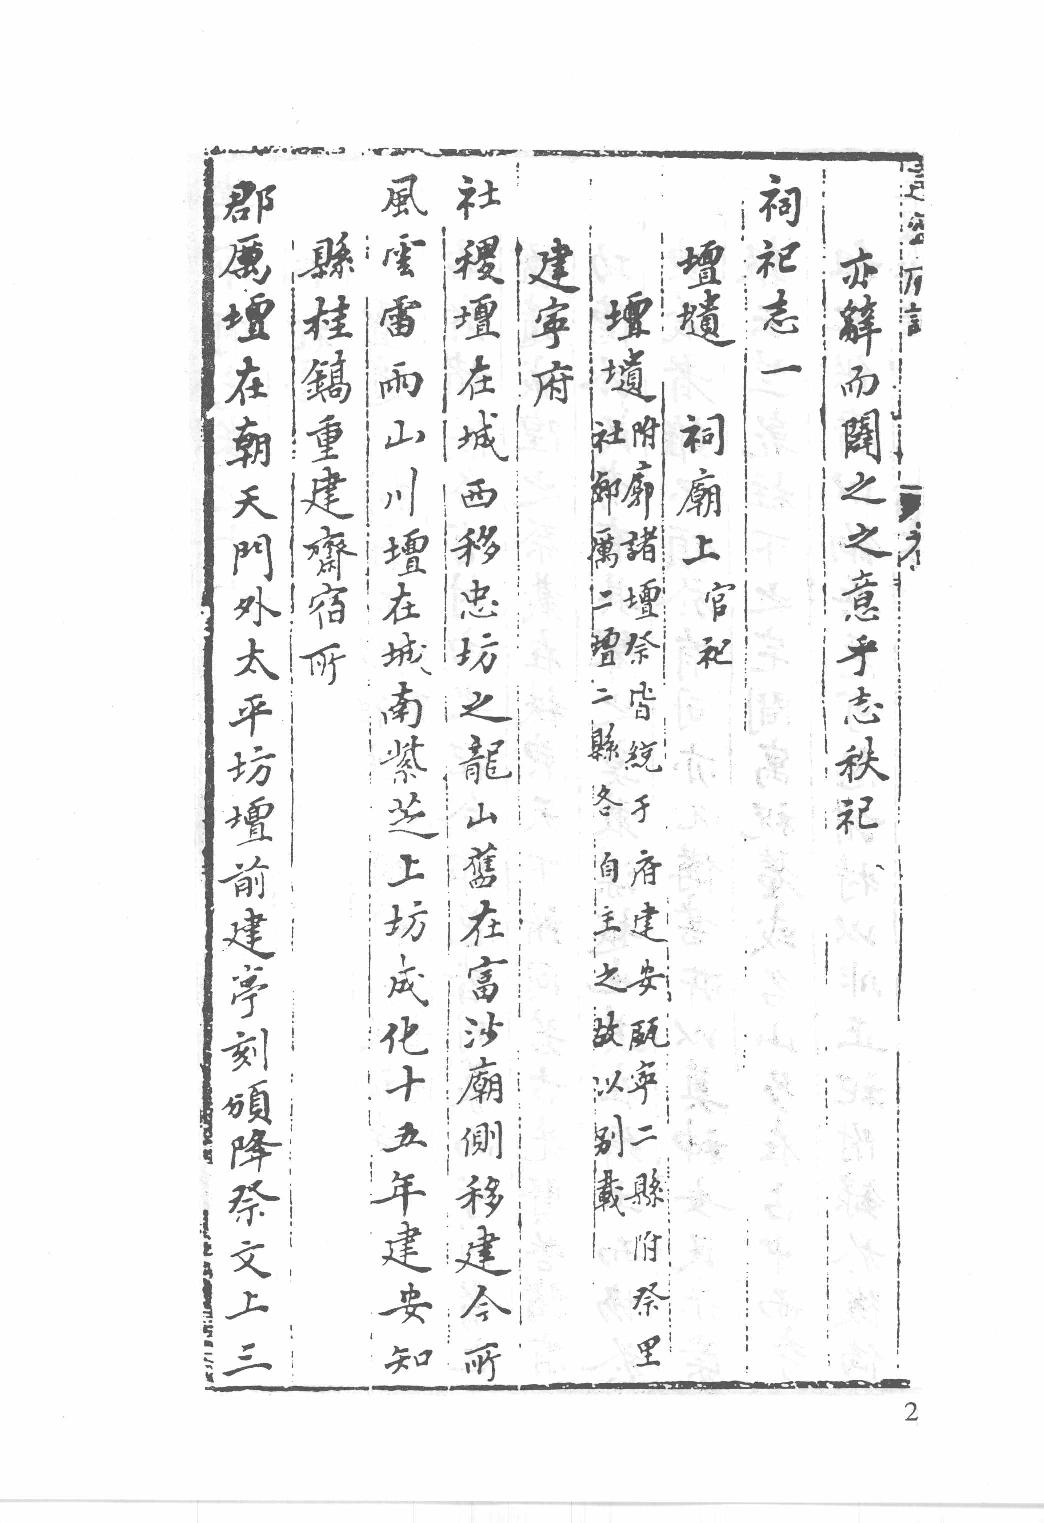 亦辭而闢之之意乎志秩祀
祠祀志一
壇壝　祠廟上官祀
壇壝附廓諸壇祭皆統于府建安甌寧二縣附祭里
社鄉厲二壇二縣各自主之故以别載
建寧府
社稷壇在城西移忠坊之龍山舊在富沙廟側移建今所
風雲雷雨山川壇在城南紫芝上坊成化十五年建安知
縣桂鎬重建齋宿所
郡厲壇在朝天門外太平坊壇前建亭刻頒降祭文上三
2